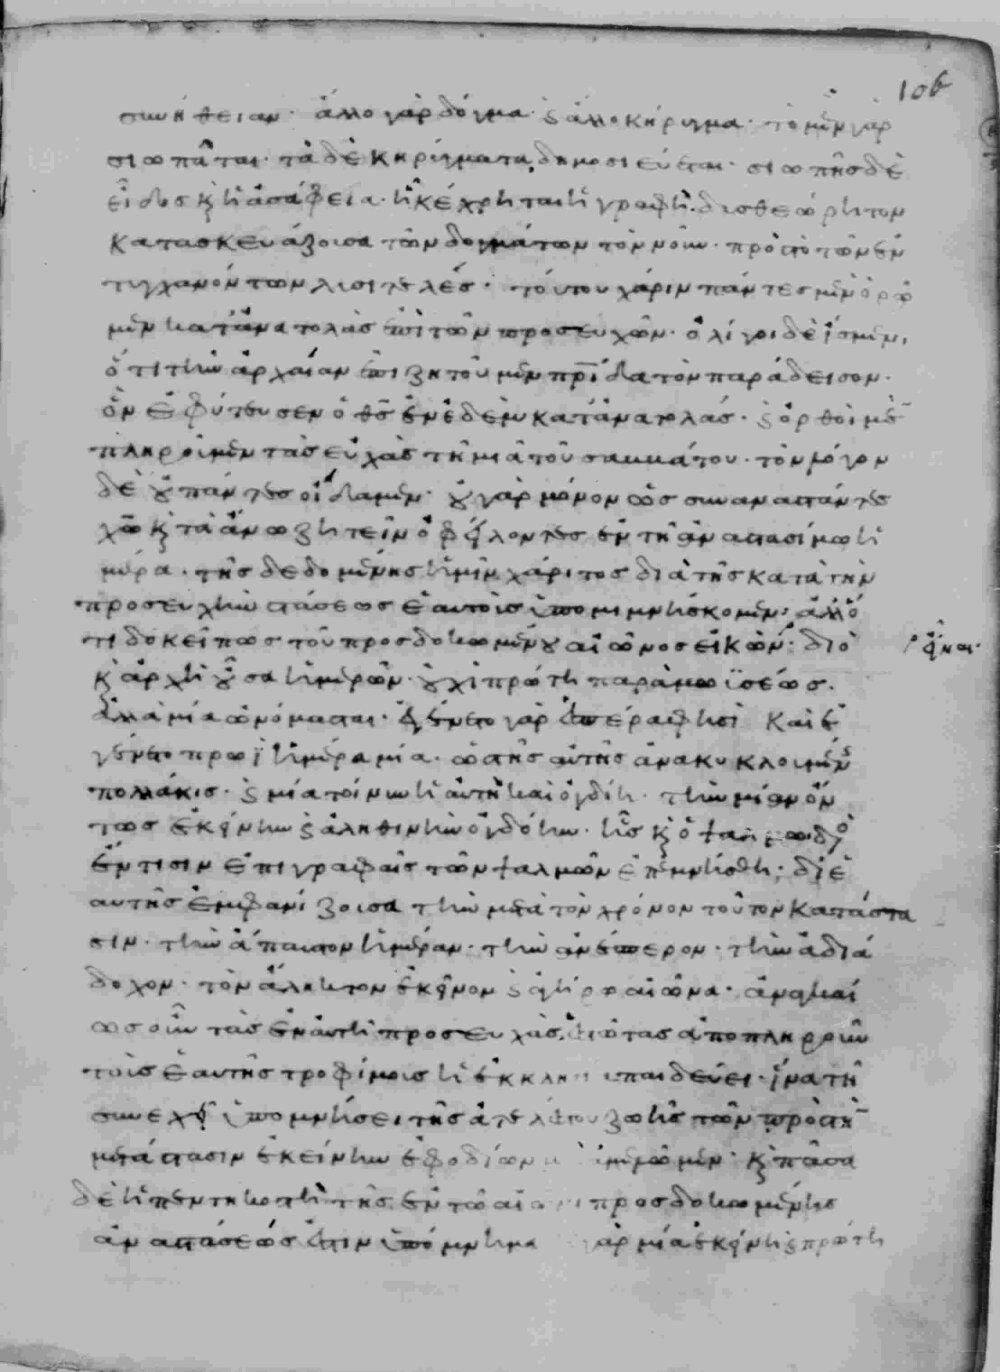 106
συνήθειαν· ἄλλο γὰρ δόγμα· καὶ ἄλλο κήρυγμα· τὸ μὲν γὰρ
σιωπᾶται· τὰ δὲ κηρύγματα δημοσιεύεται· σιωπῆς δὲ
εἶδος καὶ ἡ ἀσάφεια· ἧ κέχρηται ἡ γραφὴ· δυσθεώρητον
κατασκευάζουσα τῶν δογμάτων τὸν νοῦν· πρὸς τὸ τῶν ἐν
τυγχανόντων λυσιτελές· τούτου χάριν πάντες μὲν ὁρῶ
μεν κατὰ ἀνατολὰς ἐπὶ τῶν προσευχῶν· ὀλίγοι δὲ ἴσμεν,
ὅτι τὴν ἀρχαίαν ἐπιζητοῦμεν πρίδα τὸν παράδεισον·
ὃν ἐφύτευσεν ὁ θς ἐν ἐδὲμ κατὰ ἀνατολάς· καὶ ὀρθοὶ μὲν
πληροῦμεν τὰς εὐχὰς τῇ μιᾷ τοῦ σαββάτου· τὸν λόγον
δὲ οὐ πάντες οἴδαμεν· οὐ γὰρ μόνον ὡς συναναστάντες
χῶ καὶ τὰ ἄνω ζητεῖν ὀφείλοντες ἐν τῇ ἀναστασίμω ἡ
μέρα· τῆς δεδομένης ἡμῖν χάριτος διὰ τῆς κατὰ τὴν
προσευχὴν στάσεως ἑαυτοὺς ὑπομιμνήσκομεν· ἀλλ' ὅ
τι δοκεῖ πως τοῦ προσδοκωμένου αἰῶνος εἰκών· διὸ
εἶναι·
καὶ ἀρχὴ οὖσα ἡμερῶν· οὐχὶ πρώτη παρὰ μωϋσέως·
ἀλλὰ μία ὠνόμασται· ἐγένετο γὰρ ἑσπέρα φησὶ καὶ ἐ
γένετο πρωῒ ἡμέρα μία· ὡς τῆς αὐτῆς ἀνακυκλουμένης
πολλάκις· καὶ μία τοίνυν ἡ αὐτὴ καὶ ὀγδόη· τὴν μίαν ὄν
τως ἐκείνην καὶ ἀληθινὴν ὀγδόην· ἧς καὶ ὁ ψαλμωδὸ
ἔν τισιν ἐπιγραφαῖς τῶν ψαλμῶν ἐπεμνήσθη· δι' ἑ
αυτῆς ἐμφανίζουσα τὴν μετὰ τὸν χρόνον τοῦτον κατάστα
σιν· τὴν ἄπαυστον ἡμέραν· τὴν ἀνέσπερον· τὴν ἀδιά
δοχον· τὸν ἄληκτον ἐκεῖνον καὶ ἀγήρω αἰῶνα· ἀναγκαί
ως οὖν τὰς ἐν αὐτῇ προσευχὰς ἑστῶτας ἀποπληροῦν
τοὺς ἑαυτῆς τροφίμους ἡ ἐκκλησία παιδεύει· ἵνα τῇ
συνεχεῖ ὑπομνήσει τῆς ἀτελεύτου ζωῆς τῶν πρὸς τὴν
μετάστασιν ἐκείνην ἐφοδίων μὴ ἀμελῶμεν· καὶ πᾶσα
δὲ ἡ πεντηκοστὴ τῆς ἐν τῶ αἰῶνι προσδοκωμένης
ἀναστάσεώς ἐστιν ὑπόμνημα γὰρ μία ἐκείνη καὶ πρώτη